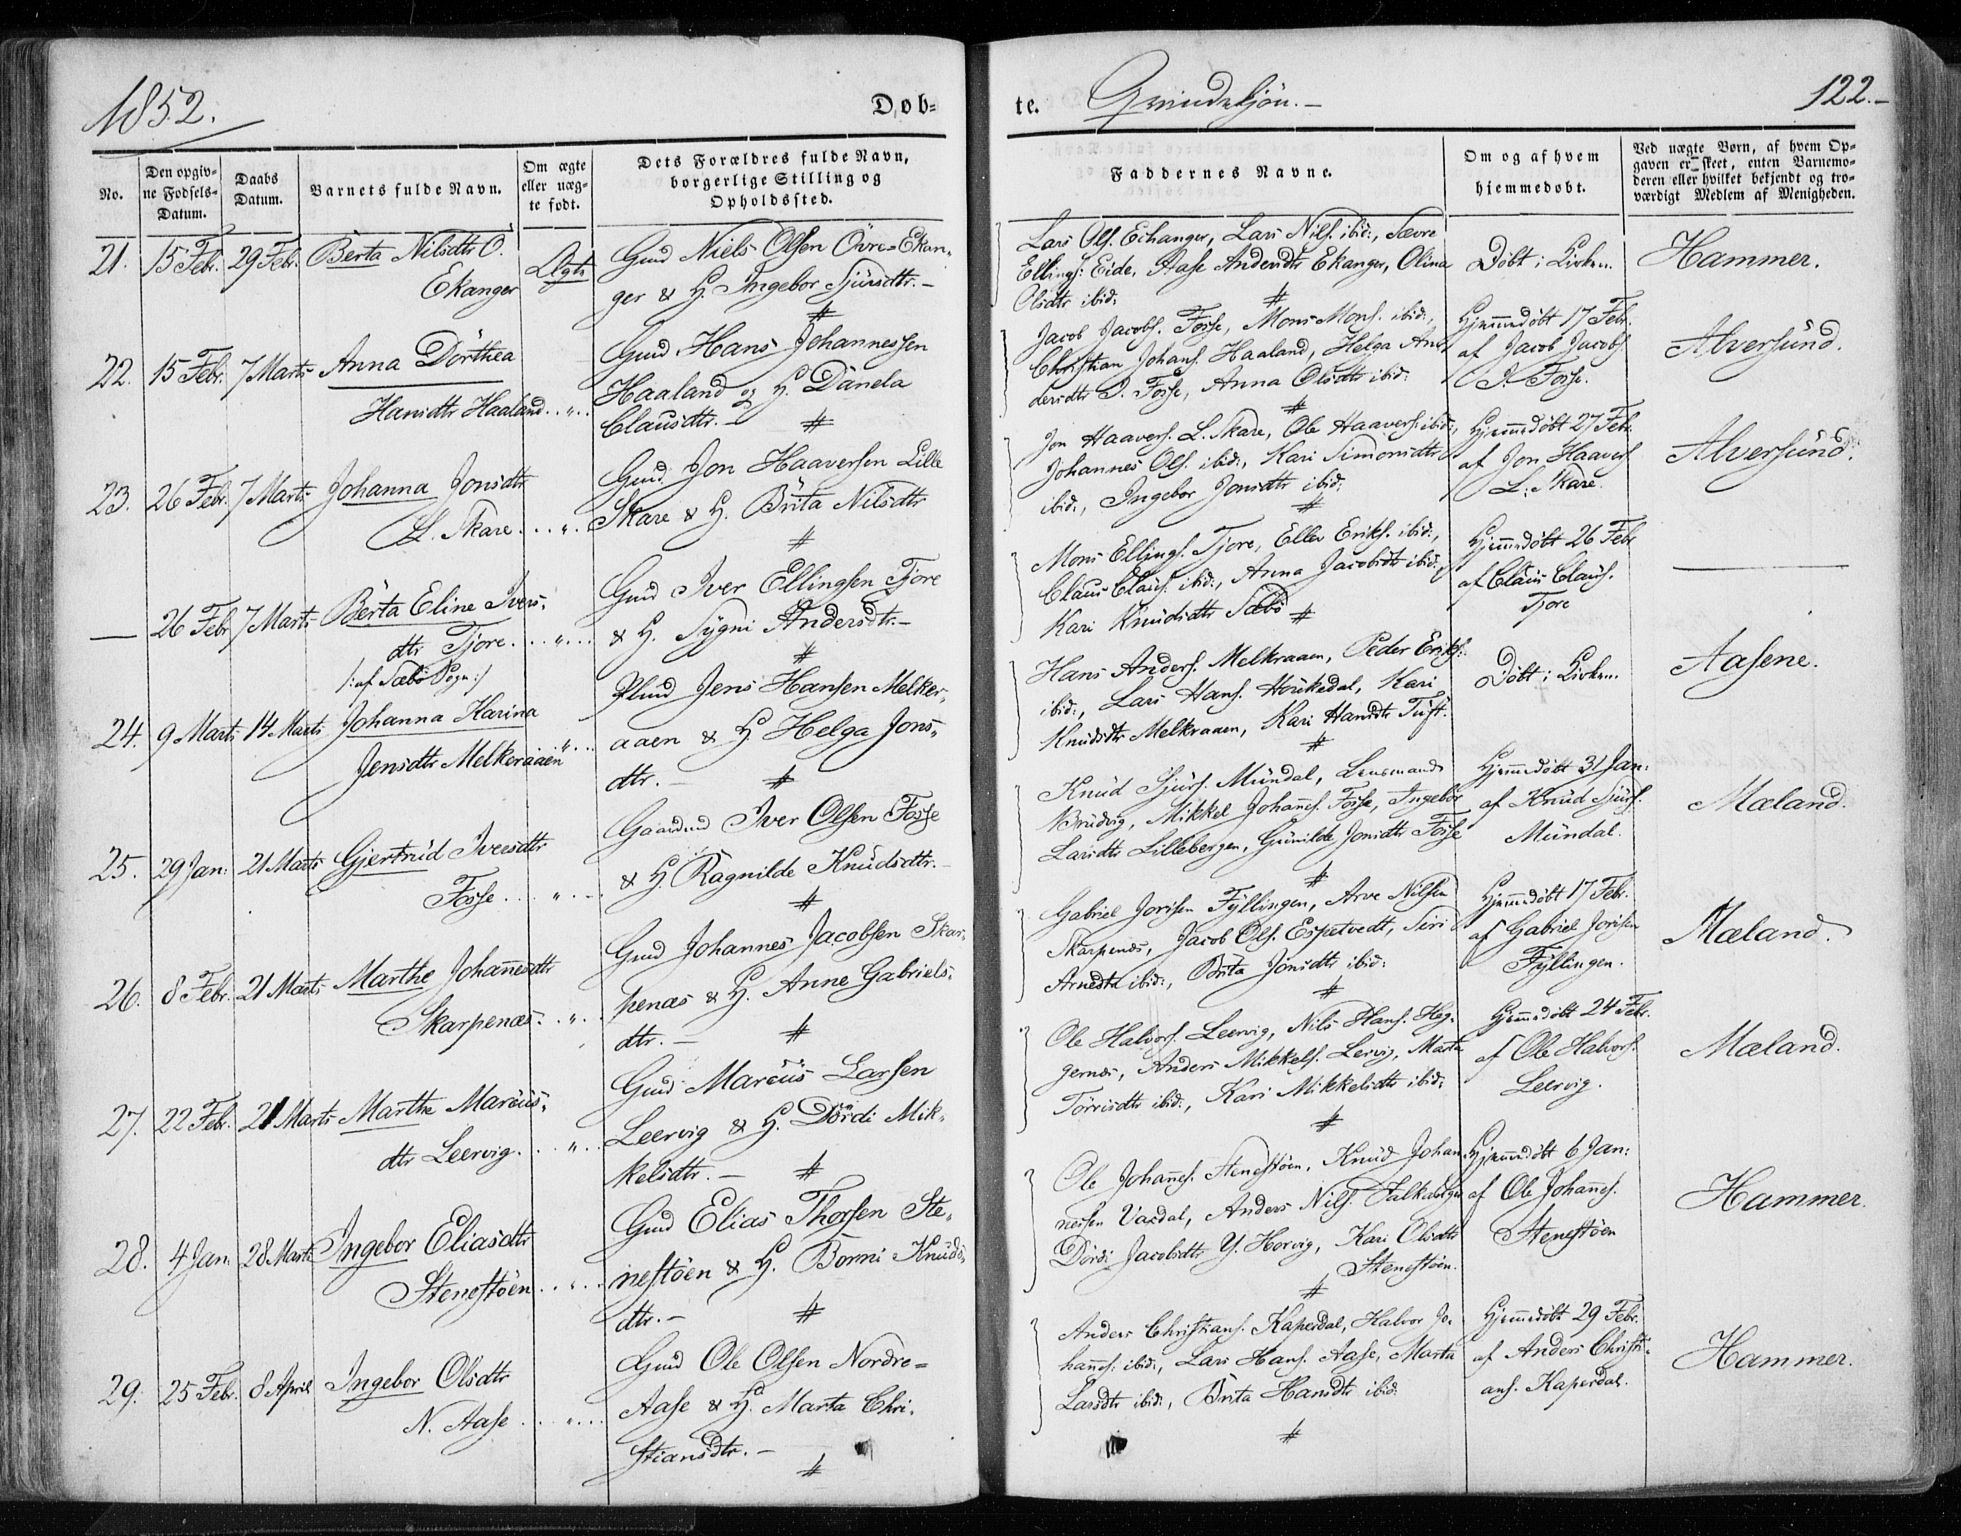 1852.
Døb-
te.
122.-
No.
Den opgiv-
ne Fødsels-
Datum.
Daabs
Datum.
Barnets fulde Navn.
Om ægte
eller uæg-
te født.
Dets Forældres fulde Navn,
borgerlige Stilling og
Opholdssted.
Faddernes Navne.
Om og af hvem
hjemmedøbt.
Ved uægte Børn, af hvem Op-
gaven er skeet, enten Barnemo-
deren eller hvilket bekjendt og tro-
værdigt Medlem af Menigheden.
21. 15 Febr. 29 Febr. Berta Nilsdtr Ö.
Ekanger
Ægte
Gmd Niels Olsen Övre-Ekan-
ger & H. Ingebor Sjürsdtr.-
Lars Ols. Echanger, Lars Nils. ibid:, Sævre
Ellings: Eide, Aase Andersdtr Ekanger, Olina
Olsdtr ibid:
Döbt i Kirken.
Hammer.
22. 15 Febr. 7 Marts Anna Dorthea
Hansdtr Haaland..".
Gmd Hans Johannessen
Haaland og H. Dänela
Clausdtr.-
Jacob Jacobs. Fosse, Mons Mons. ibid:,
Christian Johans. Haaland, Helga An-
dersdtr I. Fosse, Anna Olsdtr ibid:
Hjemmedöbt 17 Febr.
af Jacob Jacobs.
I. Fosse.
Alversünd.
23. 26 Febr. 7 Marts Johanna Jonsdtr
L. Skare...".
Gmd. Jon Haaversen Lille
Skare & H. Brita Nilsdtr
Jon Haavers. L. Skare, Ole Haavers: ibid:,
Johannes Ols. ibid:, Kari Simonsdtr
ibid:, Ingebor Jonsdtr ibid:
Hjemmedöbt 27 Febr.
af Jon Haavers.
L. Skare.
Alversünd.
— 26 Febr 7 Marts Berta Eline Ivers-
dtr Tjore...".
/:af Sæbö Sogn:/
Gmd Iver Ellingsen Tjore
& H. Sygni Andersdtr.-
Mons Ellings. Tjore, Eller Eriks. ibid:,
Claus Claus. ibid:, Anna Jacobsdtr ibid:,
Kari Knudsdtr Sæbö
Hjemmedöbt 26 Febr
af Claus Claus.
Tjore
24. 9 Marts 14 Marts Johanna Karina
Jensdtr Melkeraaen"..
Jens Hansen Melker-
aaen & H Helga Jons-
dtr.-
Hans Anders. Melkraaen, Peder Eriks.
ibid:, Lars Hans. Hörkedal, Kari
Knüdsdtr Melkraaen, Kari Hansdtr Tüft.
Döbt i Kirken..
Aasene.
25. 29 Jan: 21 Marts Gjertrüd Iversdtr
Fosse...".
Gaardmd Iver Olsen Fosse
& H. Ragnilde Knüdsdtr.-
Knüd Sjürs. Mündal, Lensmand
Brüdvig, Mikkel Johans. Fosse, Ingebor
Larsdtr Lillebergen, Günilde Jonsdtr Fosse
Hjemmedöbt 31 Jan:
af Knüd Sjürs.
Mündal.
Mæland.
26. 8 Febr. 21 Marts Marthe Johannesdtr
Skarpenæs..".
Gmd Johannes Jacobsen Skar-
penæs & H. Anne Gabriels-
dtr.-
Gabriel Jorisen Fyllingen, Arve Nilsen
Skarpenæs, Jacob Ols. Espetvedt, Siri
Arnesdtr ibid:, Brita Jonsdtr ibid:
Hjemmedöbt 17 Febr.
af Gabriel Jorisen
Fyllingen.
Mæland.
27. 22 Febr. 21 Marts Marthe Marcüs-
dtr Leervig..".
Gmd Marcüs Larsen
Leervig & H. Dördi Mik-
kelsdtr.-
Ole Halvors. Leervig, Nils Hans. Heg-
gernæs, Anders Mikkels. Lervig, Marta
Torrisdtr ibid:, Kari Mikkelsdtr ibid:
Hjemmedöbt 24 Febr.
af Ole Halvors.
Leervig.
Mæland.
28. 4 Jan. 28 Marts Ingebor Eliasdtr
Stenestöen..".
Gmd Elias Thorsen Ste-
nestöen & H. Borni Knüds-
dtr.-
Ole Johans. Stenestöen, Knüd Johan-
nessen Vaxdal, Anders Nils. Falkanger
Dördi Jacobsdtr Y. Horvig, Kari Olsdtr
Stenestöen.
Hjemmedöbt 6 Jan:
af Ole Johans.
Stenestöen
Hammer.
29. 25 Febr. 8 April Ingebor Olsdtr
N. Aase...".
Gmd Ole Olsen Nordre-
Aase & H. Marta Chri-
stiansdtr.-
Anders Christians. Kaperdal, Halvor Jo-
hans. ibid:, Lars Hans. Aase, Marta
Larsdtr ibid:, Brita Hansdtr ibid:
Hjemmedöbt 29 Febr.
af Anders Christi-
ans. Kaperdal.
Hammer.